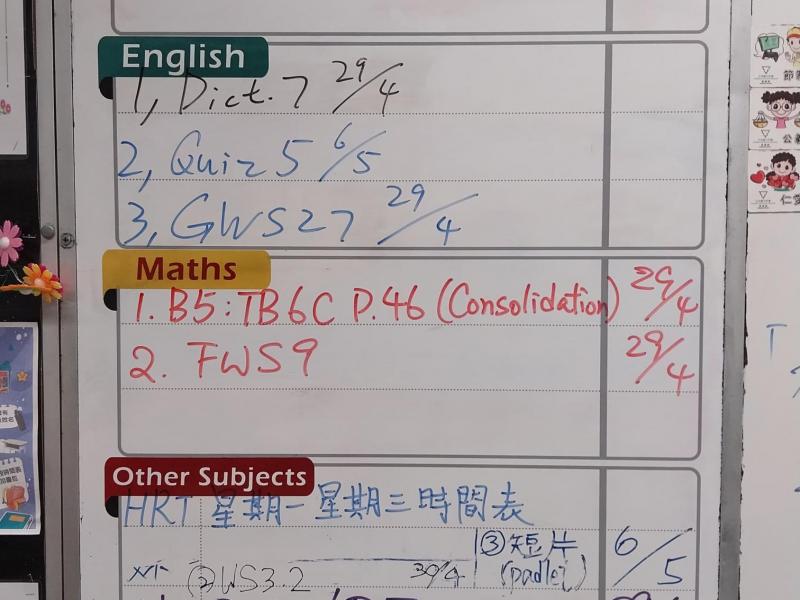 English
1, Dict. 7 29/4
2, Quiz 5 6/5
3, GWS27 29/4
Maths
1. B5: TB6C P.46 (Consolidation) 29/4
2. FWS9 29/4
Other Subjects
HRT 星期一星期三時間表
③短片 6/5
(padlet)
②WS3.2 30/4
公
仁愛